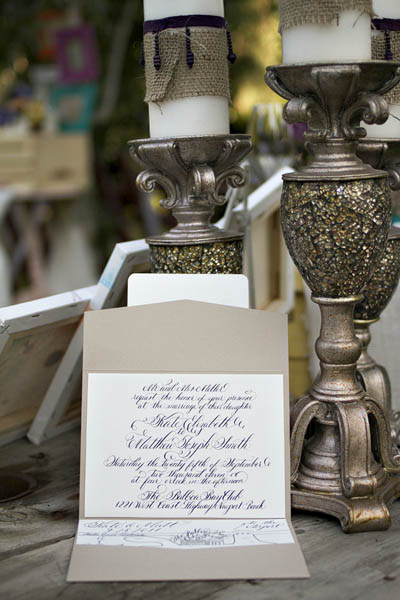 Mr. and Mrs. Miller
request the honor of your presence
at the marriage of their daughter
Kate Elizabeth
to
Matthew Joseph Smith
Saturday the twenty fifth of September
two thousand eleven
at four o'clock in the afternoon
The Balboa Bay Club
1221 West Coast Highway Newport Beach
Kate & Matt